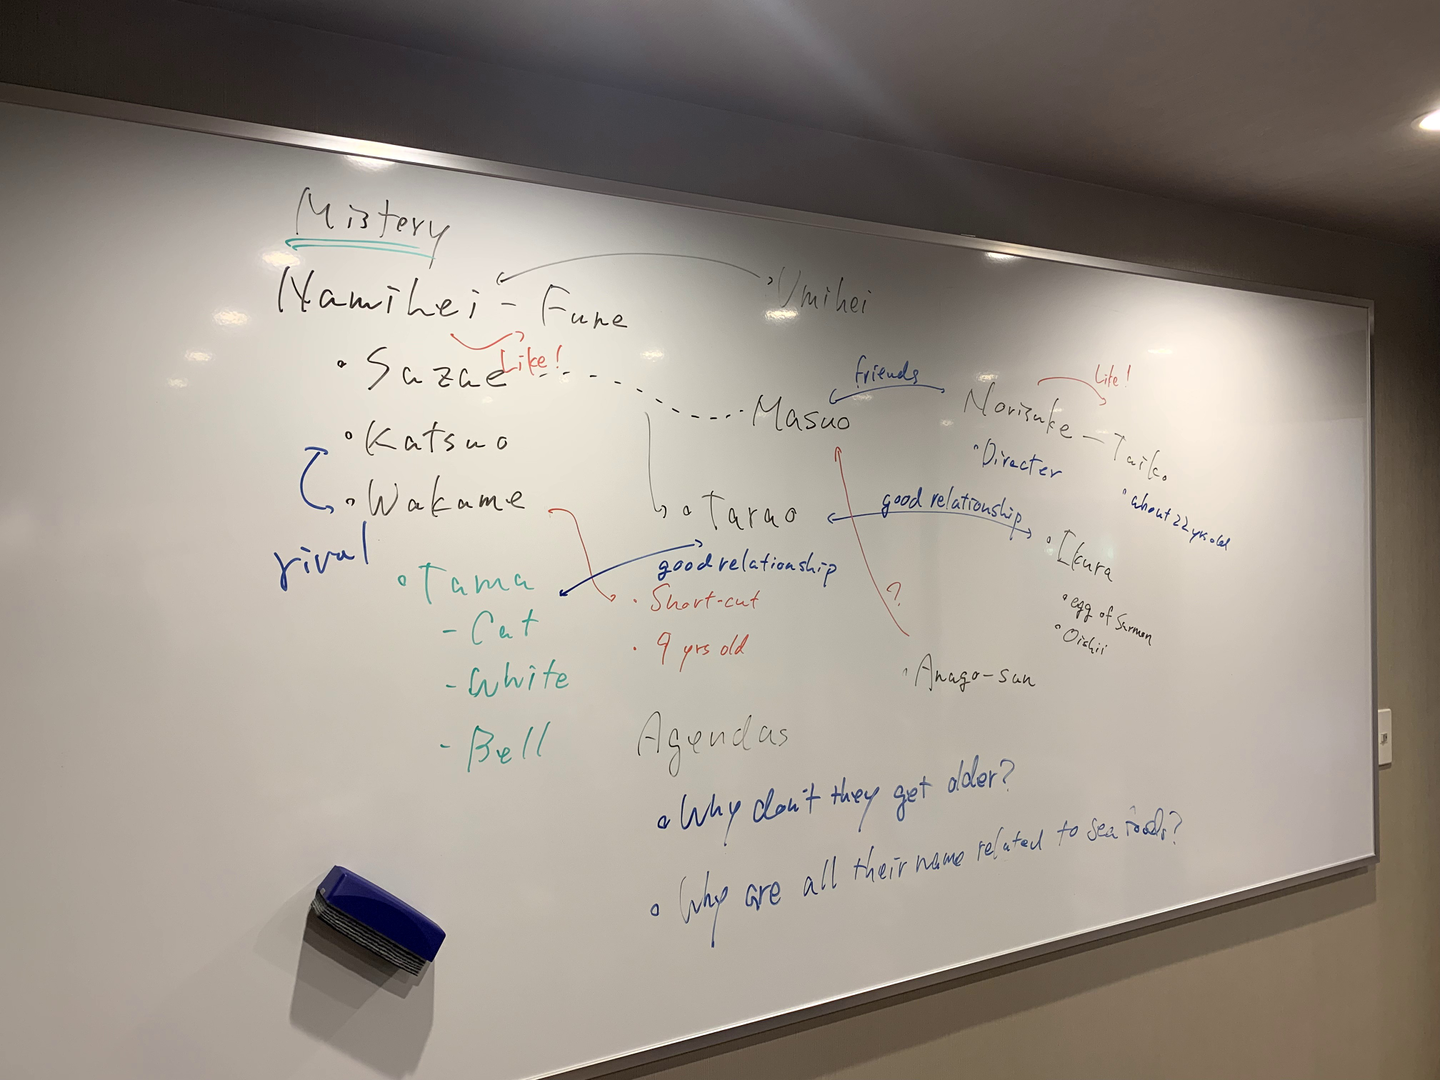 Mistery
Namihei - Fune
Umihei
Like!
Sazae
Masuo
friends
Norisuke - Taiko
Like!
Directer
about 22 yrs old
Katsuo
Wakame
rival
Tarao
good relationship
Ikura
egg of Sarmon
Oishii
good relationship
Tama
- Cat
- White
- Bell
Short-cut
9 yrs old
?
Anago-san
Agendas
Why don't they get older?
Why are all their name related to sea foods?